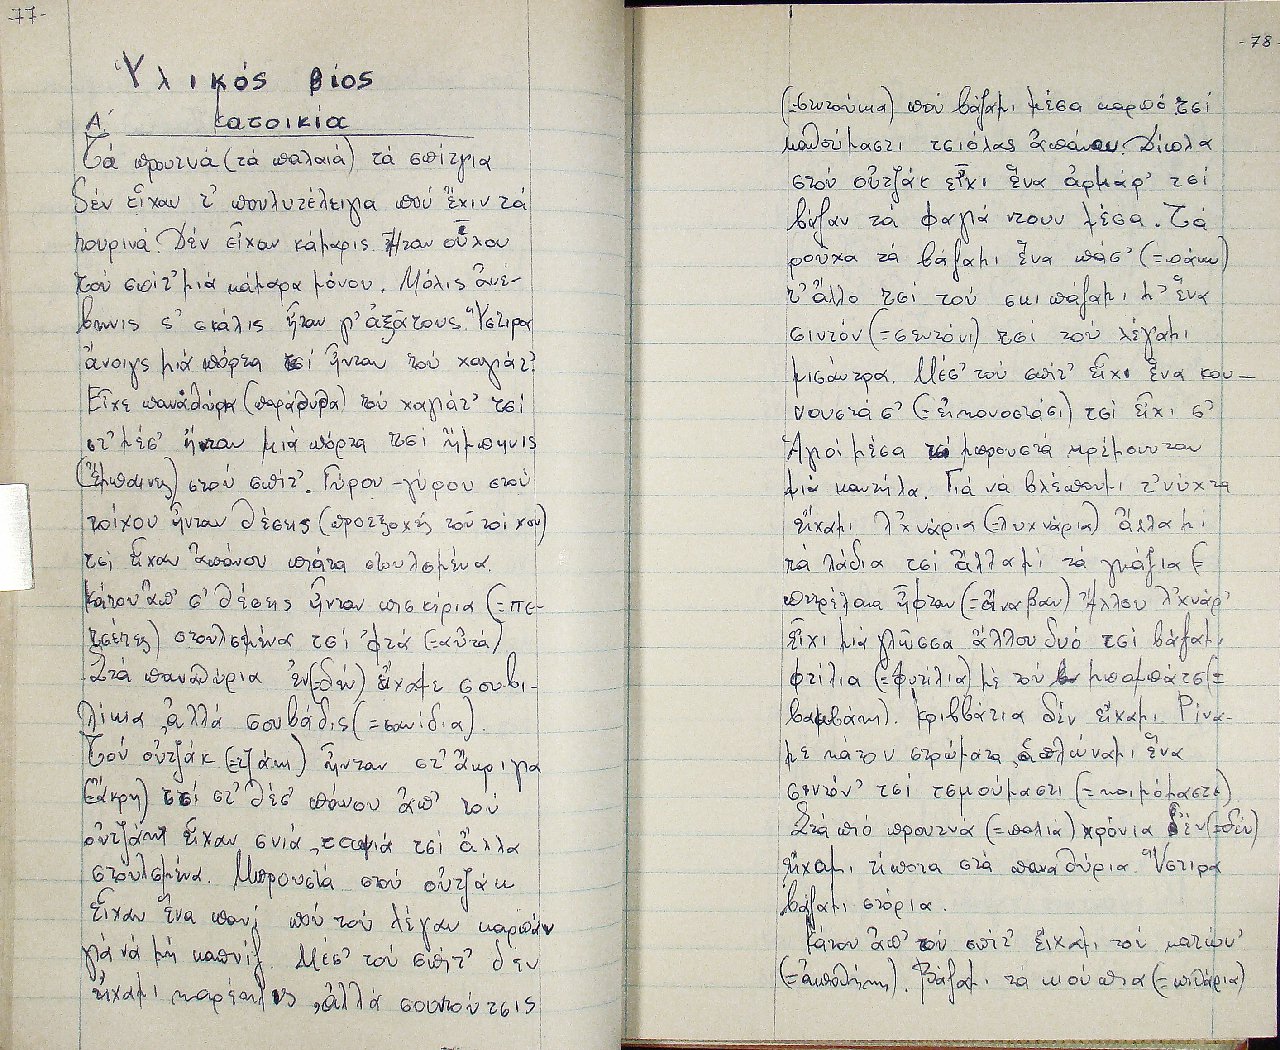 -77-
Ὑλικός βίος
Α΄ Κατοικία
Τά προυτινά (τά παλαιά) τά σπίτγια
δέν εἶχαν τ' πουλυτέλειγια πού ἔχιν τά
τουρινά. Δέν εἶχαν κάμαρις. Ἦταν οὗλου
τού σπίτ' μιά κάμαρα μόνου. Μόλις ἀνέ-
βηνις τ' σκάλις ἦταν γ' ἀξάτους. Ὕστιρα
ἄνοιγς μιά πόρτα τσί ἦνταν τού χαγιάτ'.
Εἶχε παναθύρα (παράθυρα) τού χαγιάτ' τσί
στ' μέσ' ἦταν μιά πόρτα τσί ἤμπηνις
(Ἔμπαινες) στού σπίτ'. Γύρου-γύρου στού
τοίχου ἦνταν θέσης (προεξοχές τοῦ τοίχου)
τσί εἶχαν ἀπάνου πιάτα στουλσμένα.
Κάτου ἀπ' σ' θέσης ἦνταν πισκίρια (=πε-
τσέτες) στουλσμένα τσί 'φτά (=αὐτά)
Στά παναθύρια ἐν(=δέν) εἴχαμε σουβι-
λίκια, ἀλλά σουβάδις (=σανίδια).
Τού οὐτζάκ (=τζάκι) ἦνταν στ' ἄκριγια
(=ἄκρη) τσί στ' θέσ' πάνου ἀπ' τού
οὐτζάκ εἶχαν σνιά, ταψιά τσί ἄλλα
στουλσμένα. Μπρουστά στού οὐτζάκ
εἶχαν ἕνα πανί πού τού λέγαν καρπάν
γιά νά μή καπνίζ. Μέσ' τού σπίτ' δεν
εἴχαμι καρέκλις, ἀλλά σουπούτσις
-78-
(=σεντούκια) πού βάζαμι μέσα καρπό τσί
καθούμαστι τσιόλας ἀπάνου. Δίπλα
στού οὐτζάκ εἶχι ἕνα ἀρμάρ' τσί
βάζαν τά φαγιά ντουν μέσα. Τά
ροῦχα τά βάζαμι ἕνα πάσ' (=πάνω)
τ' ἄλλο τσί τού σκιπάζαμι μ' ἕνα
σιντόν (=σεντόνι) τσί τού λέγαμι
μισάντρα. Μέσ' τού σπίτ' εἶχι ἕνα κου-
νουστάσ' (=εἰκονοστάσι) τσί εἶχι σ'
Ἁγιοί μέσα τσί μπρουστά κρέμουνταν
μιά καντήλα. Γιά νά βλέπουμι τ' νύχτα
εἴχαμι λ'χνάρια (=λυχνάρια) ἄλλα μί
τά λάδια τσί ἄλλα μί τά γκάζια
πιτρέλαια ἦφταν (=ἄναβαν) Ἄλλου λ'χνάρ'
εἶχι μιά γλῶσσα ἄλλου δυό τσί βάζαμι
φτίλια (=φυτίλια) μέ τού μπαμπάτσ (=
βαμβάκι). Κριββάτια δέν εἴχαμι. Ρίνα-
με κάτου στρώματα, ἁπλώναμι ἕνα
σιντόν' τσί τσμούμαστι (=κοιμόμαστε)
Στά πιό προυτινά (=παλιά) χρόνια δέν(=δέν)
εἴχαμι τίποτα στά παναθύρια. Ὕστιρα
βάζαμι στόρια.
Κάτου ἀπ' τού σπίτ' εἴχαμι τού κατώυ'
(=ἀποθήκη). Βάζαμι τά κιούπια (=πιθάρια)